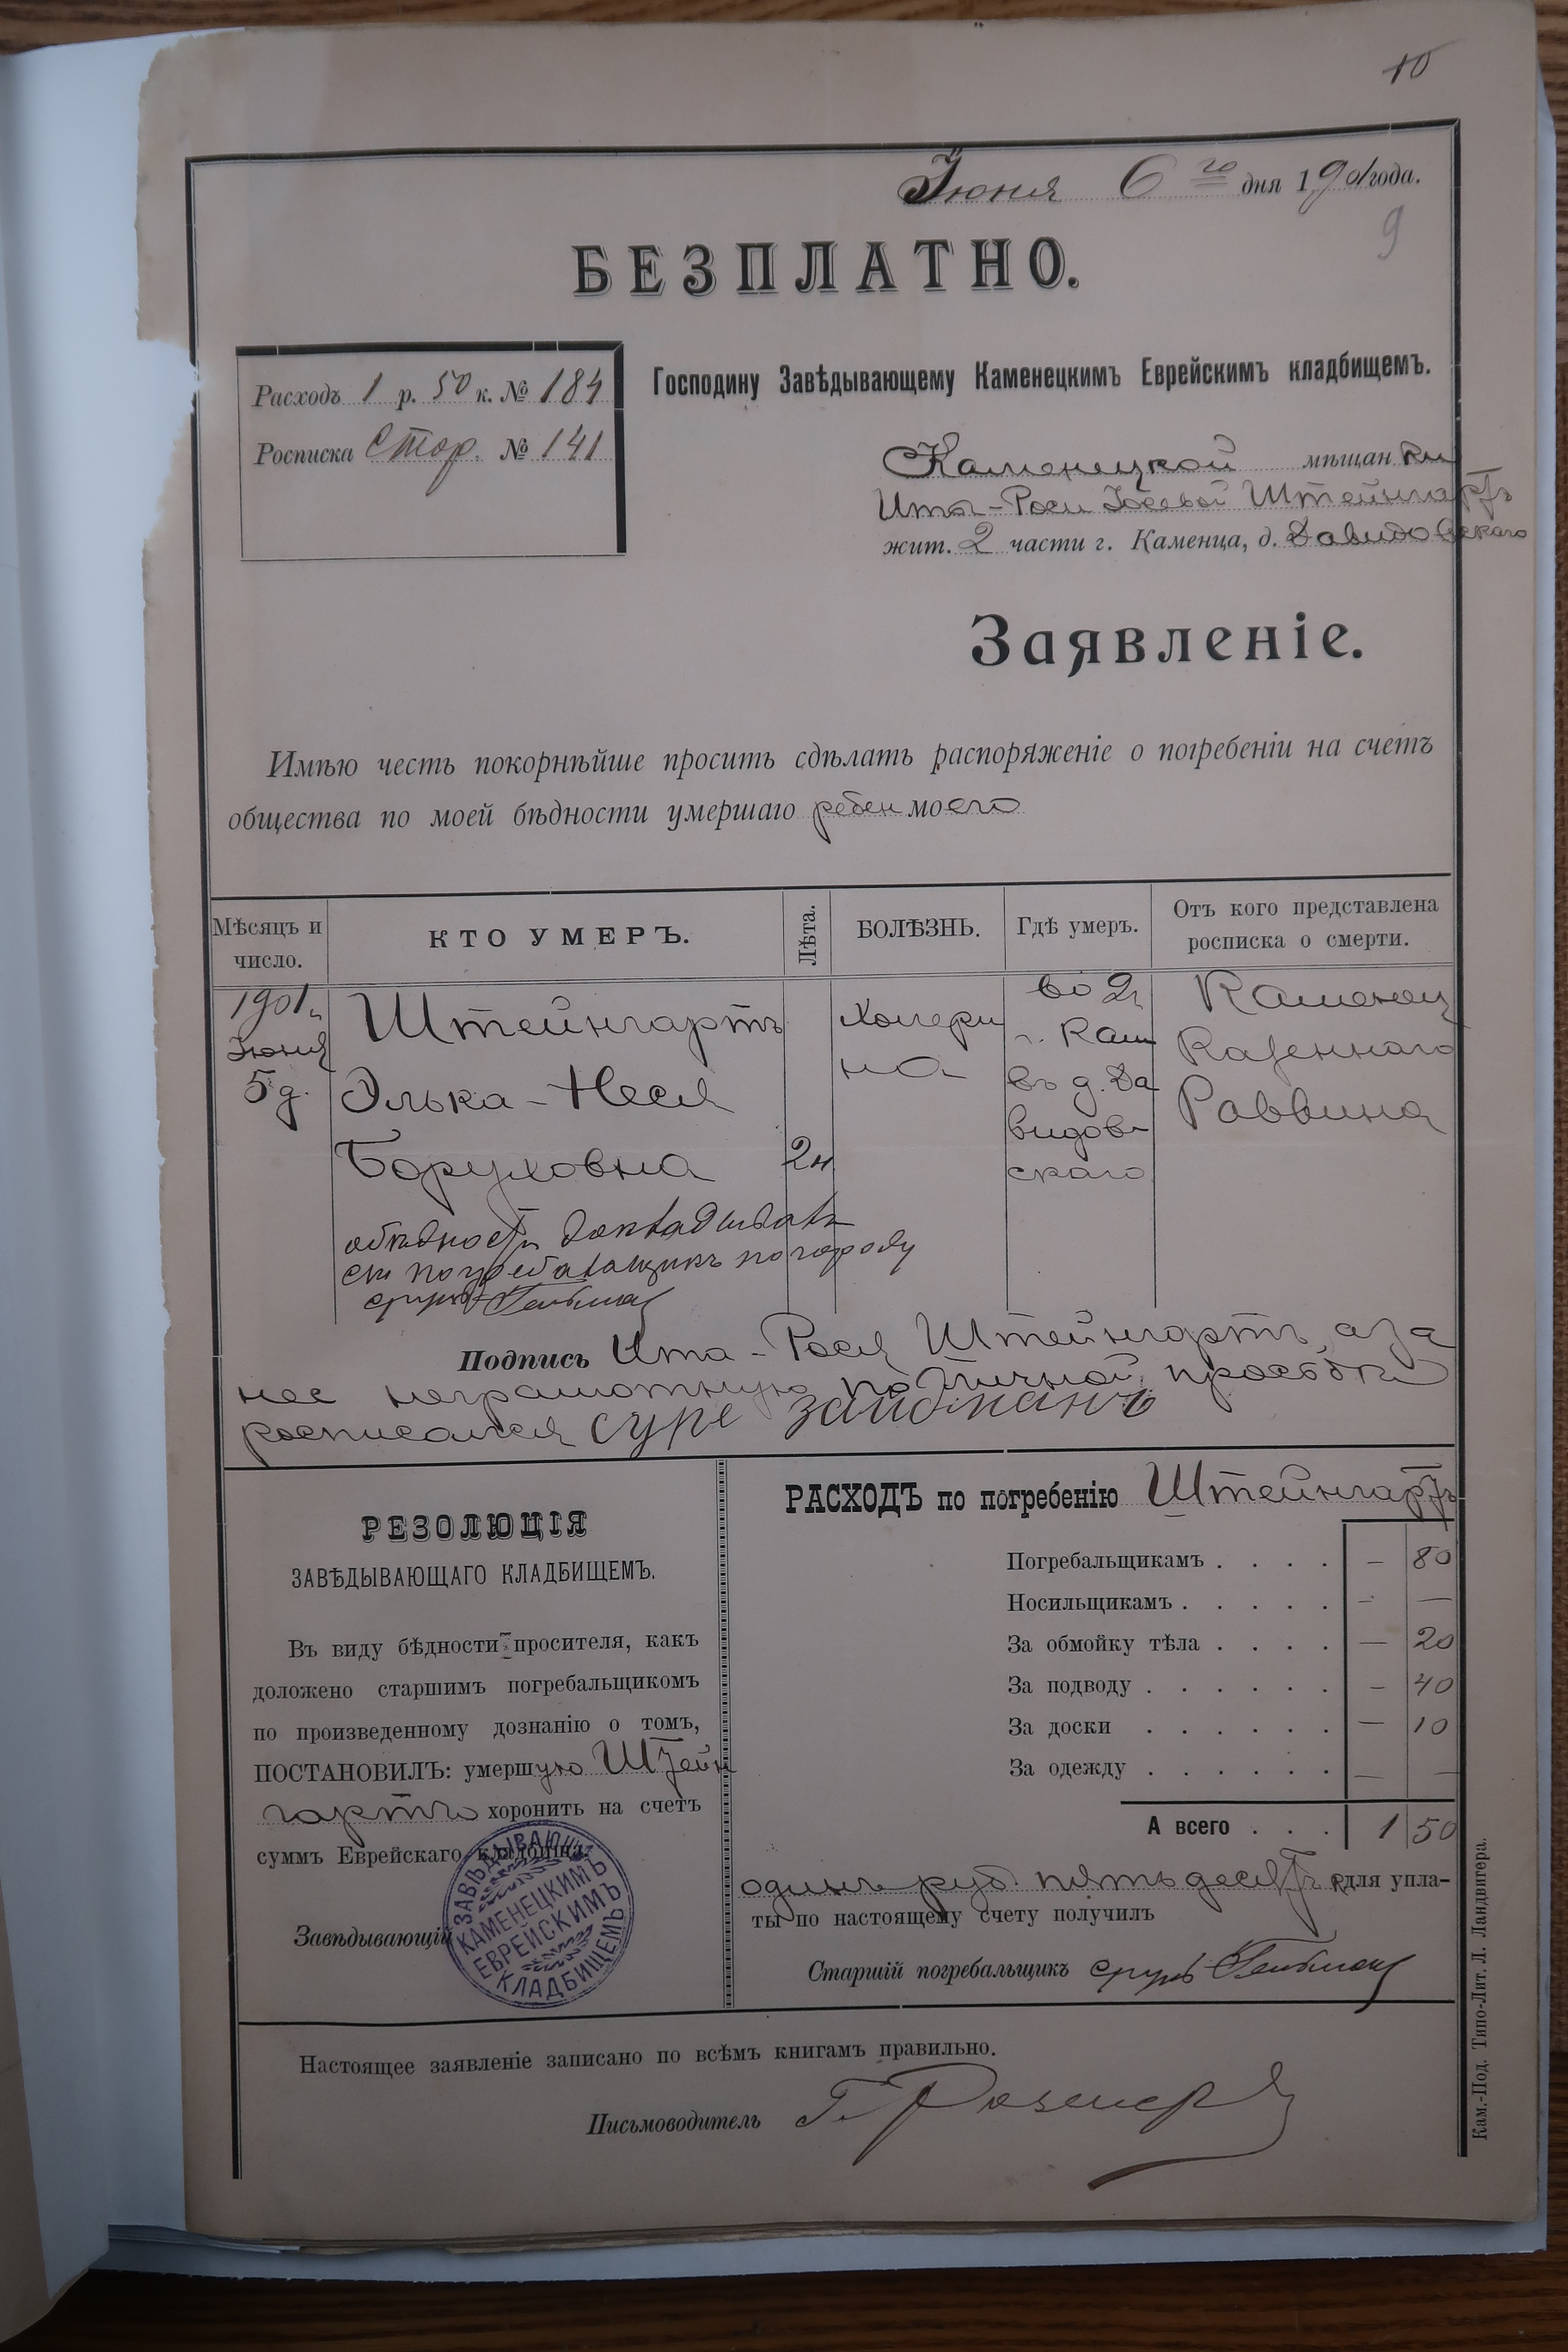 10
Іюня 6 го дня 1901 года.
9
БЕЗПЛАТНО.
Расходъ 1 р. 50 к. № 184
Росписка Стор. № 141
Господину Завѣдывающему Каменецкимъ Еврейскимъ кладбищемъ.
Каменецкой мѣщанки
Ита-Роси Іосевой Штейнгартъ
жит. 2 части г. Каменца, д. Давидовскаго
Заявленіе.
Имѣю честь покорнѣйше просить сдѣлать распоряженіе о погребеніи на счетъ
общества по моей бѣдности умершаго ребен моего
Мѣсяцъ и число.
КТО УМЕРЪ.
Лѣта.
БОЛѢЗНЬ.
Гдѣ умеръ.
Отъ кого представлена росписка о смерти.
1901 г.
Іюня
5 д.
Штейнгартъ
Элька-Неся
Боруховна
2 н
Холери
на
во 2 ч
г. Кам
въ д. Да
видов-
скаго
Каменец
Казеннаго
Раввина
обѣдности докладывалъ
ст погребальщикъ по городу
сруль Гельман
Подпись Ита-Рося Штейнгартъ, а за
нее неграмотную по личной просьбѣ
росписался суре зайдманъ
РЕЗОЛЮЦІЯ
ЗАВѢДЫВАЮЩАГО КЛАДБИЩЕМЪ.
Въ виду бѣдности просителя, какъ
доложено старшимъ погребальщикомъ
по произведенному дознанію о томъ,
ПОСТАНОВИЛЪ: умершую Штейн
гартъ хоронить на счетъ
суммъ Еврейскаго кладбища.
Завѣдывающій
ЗАВѢДЫВАЮЩ.
КАМЕНЕЦКИМЪ
ЕВРЕЙСКИМЪ
КЛАДБИЩЕМЪ
РАСХОДЪ по погребенію Штейнгартъ
Погребальщикамъ . . . . — 80
Носильщикамъ . . . . . — —
За обмойку тѣла . . . . — 20
За подводу . . . . . . — 40
За доски . . . . . . — 10
За одежду . . . . . . — —
А всего . . . 1 50
одинъ руб. пятьдесятъ к для упла-
ты по настоящему счету получилъ
Старшій погребальщикъ сруль Гельман
Настоящее заявленіе записано по всѣмъ книгамъ правильно.
Письмоводитель Г.
Кам.-Под. Типо-Лит. Л. Ландвигера.